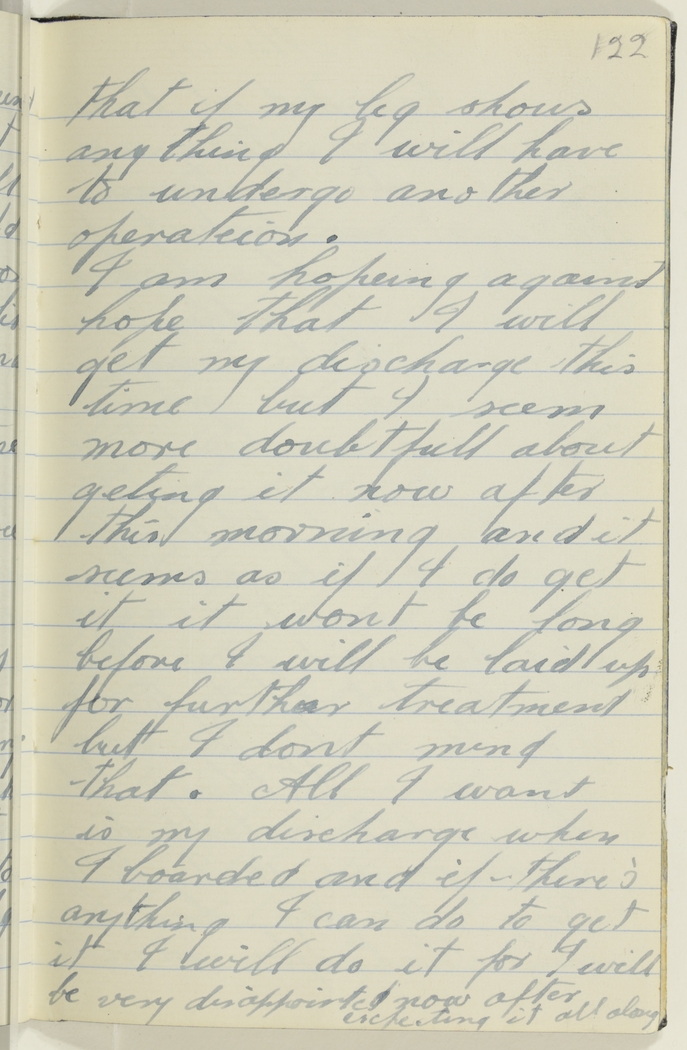 122
that if my leg shows
anything I will have
to undergo another
operateion.
I am hopeing against
hope that I will
get my discharge this
time but I seem
more doubtfull about
geting it now after
this morning and it
seems as if I do get
it it wont be long
before I will be laid up
for further treatment
but I dont mind
that. All I want
is my discharge when
I boarded and if there's
anything I can do to get
it I will do it for I will
be very disappointed now after
expecting it all along